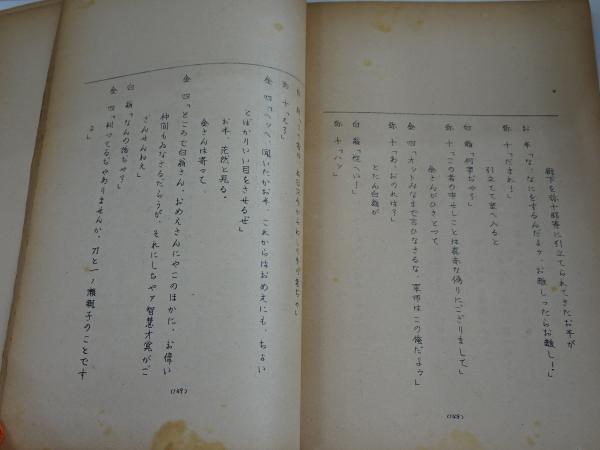 廊下を弥十郎等に引立てられてきたお半が
お半「な、なにをするんだよゥ、お離しったらお離し！」
弥十「だまれ！」
引立てて室へ入ると
白翁「何事ぢや？」
弥十「この者の申せしことは真赤な偽りにござりまして」
金さんがひきとつて、
金四「オットみなまで言ひなさるな、家守はこの俺だよウ」
弥十「あ、おのれは？」
とたん白翁が
白翁「控へい！」
弥十「ハッ」
(148)
弥十「えッ」
金四「ヘッへ、聞いたかお半、これからはおめえにも、ちよい
とばかりいい目をさせるぜ」
お半、茫然と見る。
金さんは寄って、
金四「ところで白翁さん、おめえさんにやこのほかに、お偉い
仲間もゐなさるだらうが、それにしちやァ智慧才覚がご
ざんせんねえ」
白翁「なんの話ぢや？」
金四「判ってるぢやありませんか、刀と一ノ瀬親子のことです
よ」
(149)